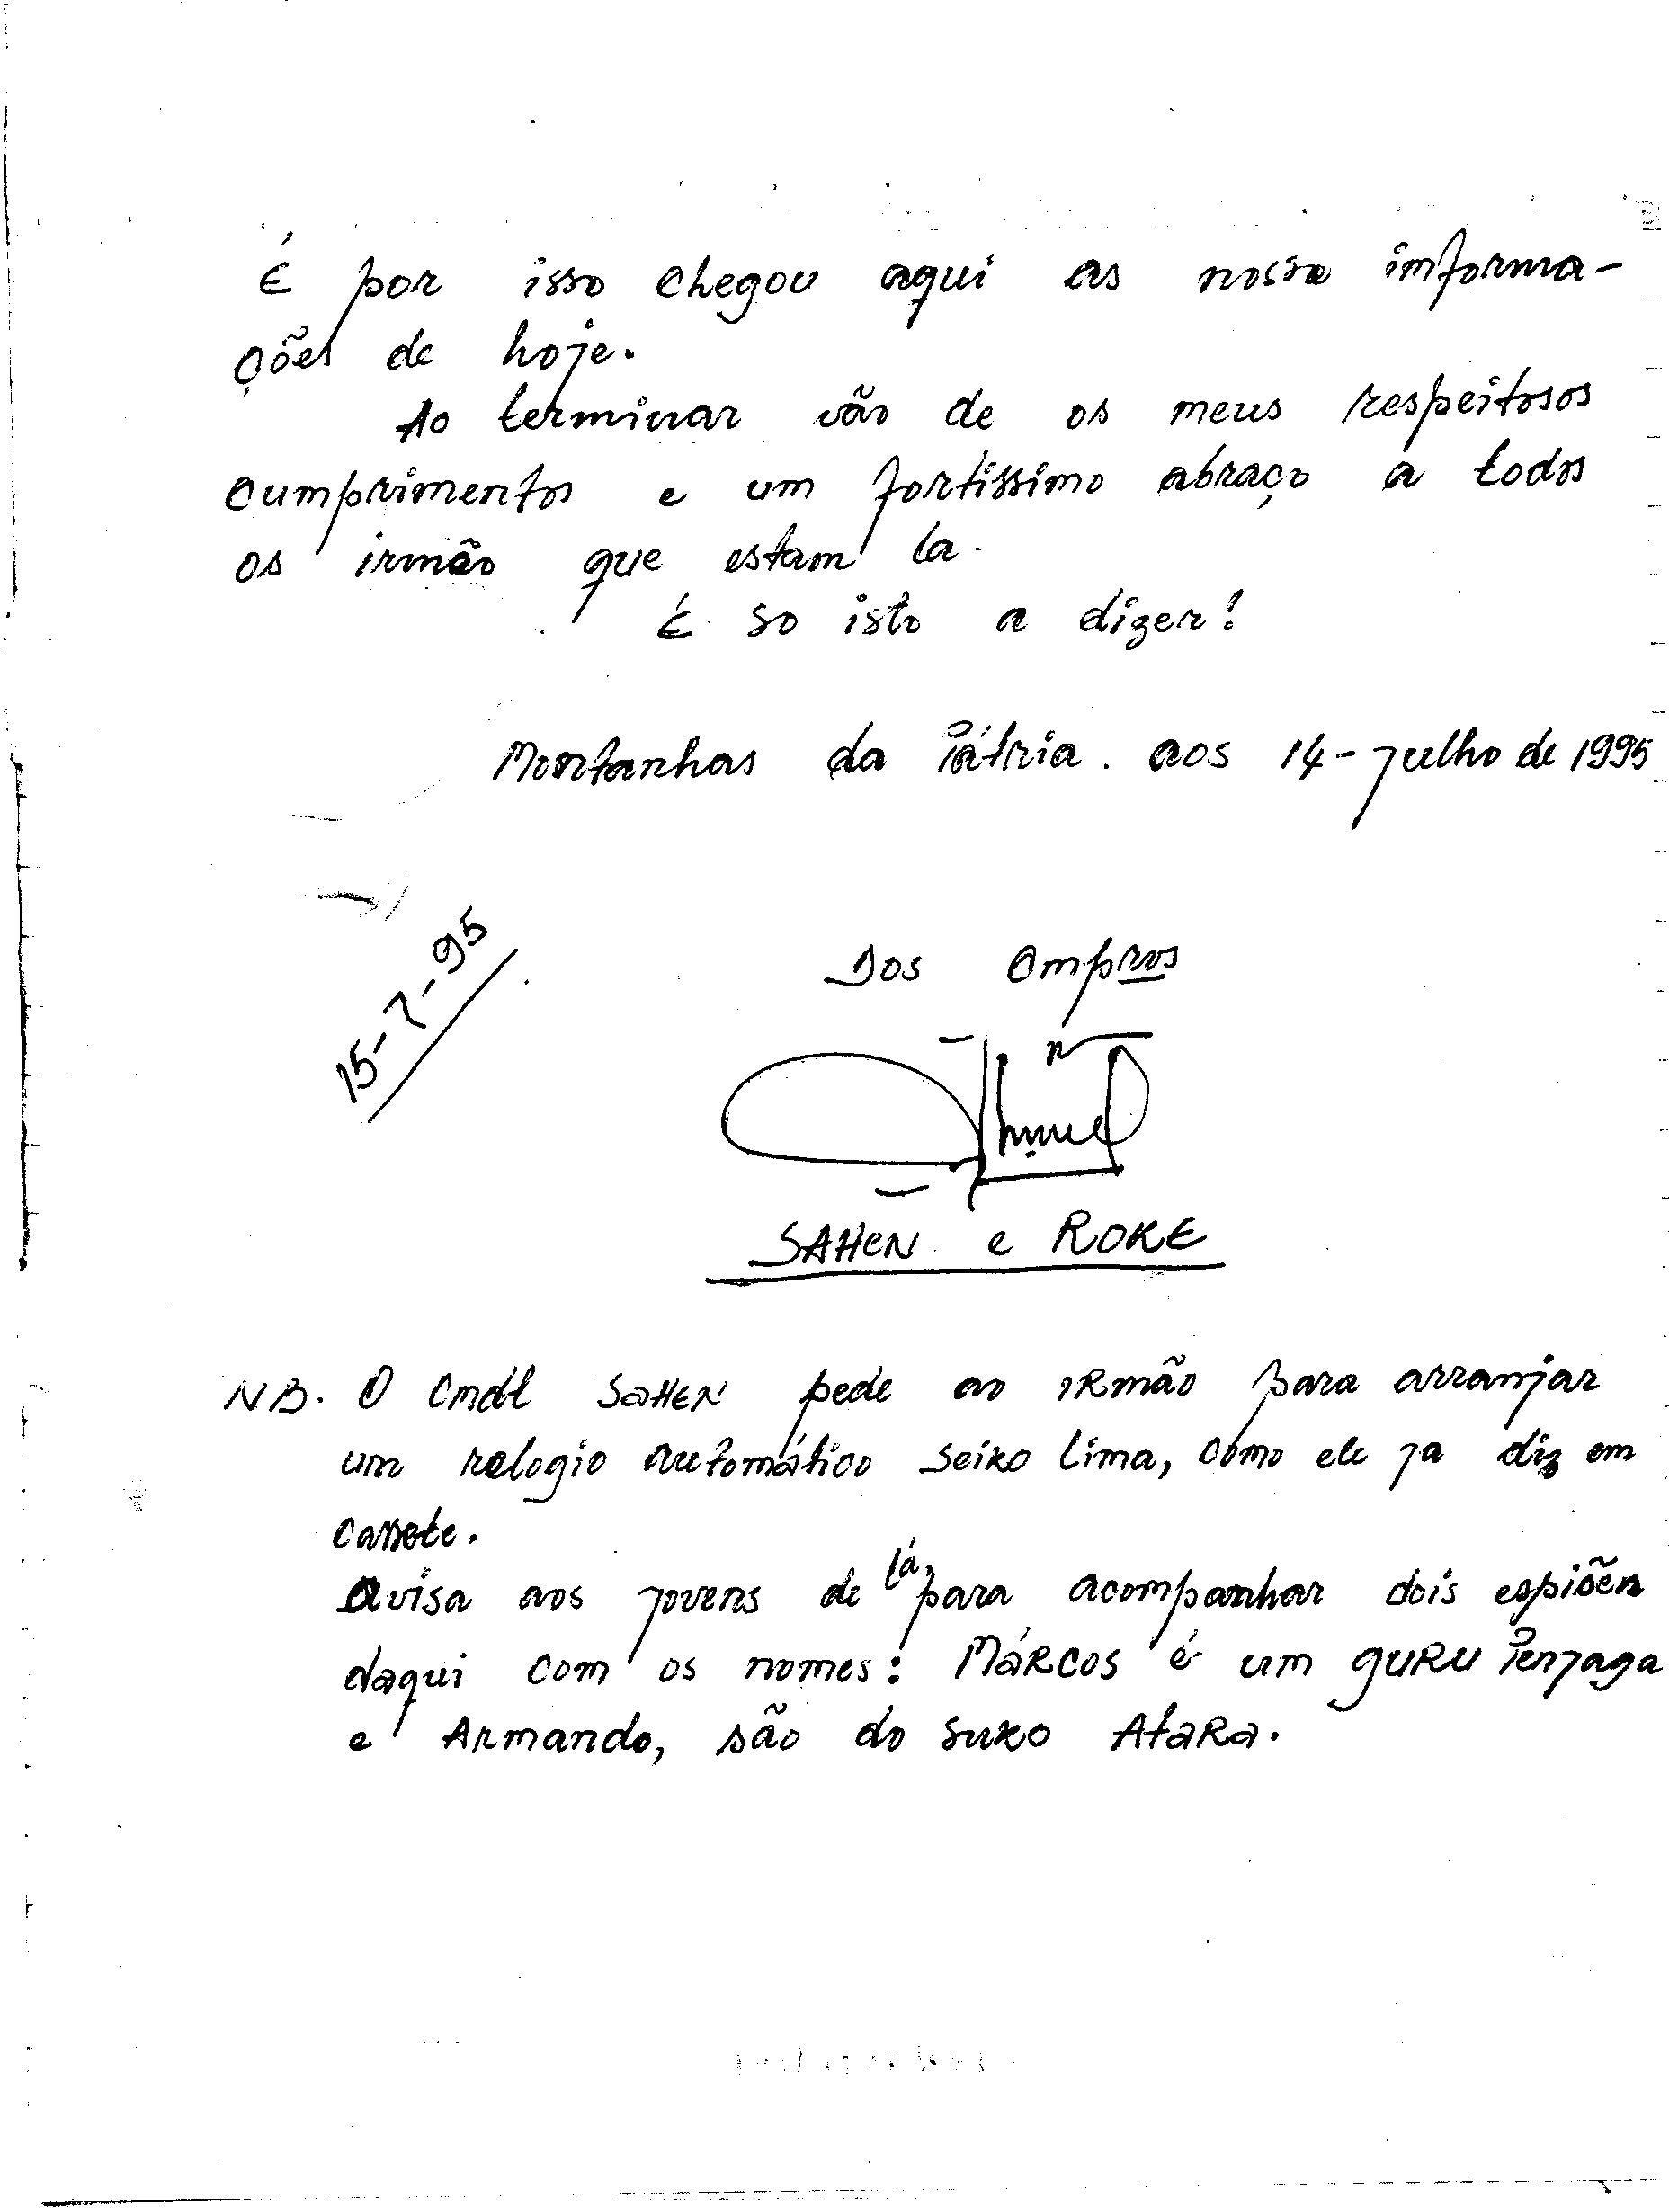 É por isso chegou aqui as nossa imforma-
ções de hoje.
Ao terminar vão de os meus respeitosos
cumprimentos e um fortissimo abraço a todos
os irmão que estam la.
É so isto a dizer!
Montanhas da Pátria. aos 14-julho de 1995
15-7-95
Dos Ompros
SAHEN e ROKE
NB. O Cmdt SAHEN pede ao IRmão para arranjar
um relogio automático Seiko Lima, como ele ja diz em
cassete.
Avisa aos jovens de lá, para acompanhar dois espiões
daqui com os nomes: MáRCOS é um guRu Penjaga
e Armando, são do suko AtaRa.